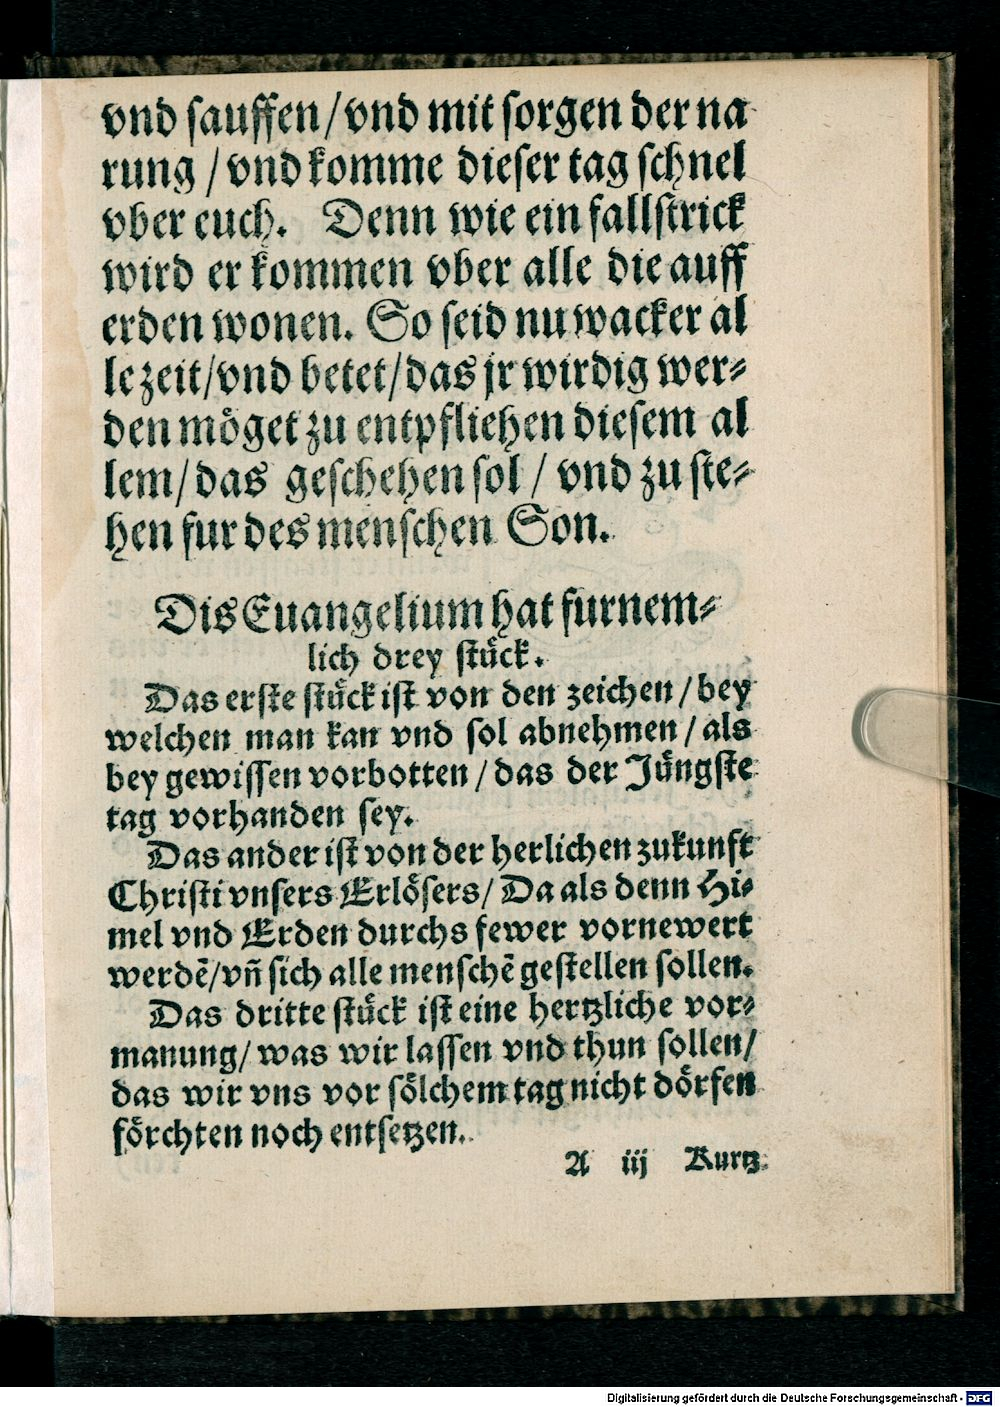 vnd sauffen/vnd mit sorgen der na
rung /vnd komme dieser tag schnel
vber euch. Denn wie ein fallstrick
wird er kommen vber alle die auff
erden wonen. So seid nu wacker al
le zeit/vnd betet/das jr wirdig wer⸗
den möget zu entpfliehen diesem al
lem/das geschehen sol / vnd zu ste⸗
hen fur des menschen Son.
Dis Euangelium hat furnem⸗
lich drey stück.
Das erste stück ist von den zeichen/bey
welchen man kan vnd sol abnehmen/als
bey gewissen vorbotten/das der Jüngste
tag vorhanden sey.
Das ander ist von der herlichen zukunft
Christi vnsers Erlösers/Da als denn Hi⸗
mel vnd Erden durchs fewer vornewert
werdē/vñ sich alle menschē gestellen sollen.
Das dritte stück ist eine hertzliche vor⸗
manung/was wir lassen vnd thun sollen/
das wir vns vor sölchem tag nicht dörfen
förchten noch entsetzen.
A iij Kurtz
Digitalisierung gefördert durch die Deutsche Forschungsgemeinschaft - DFG